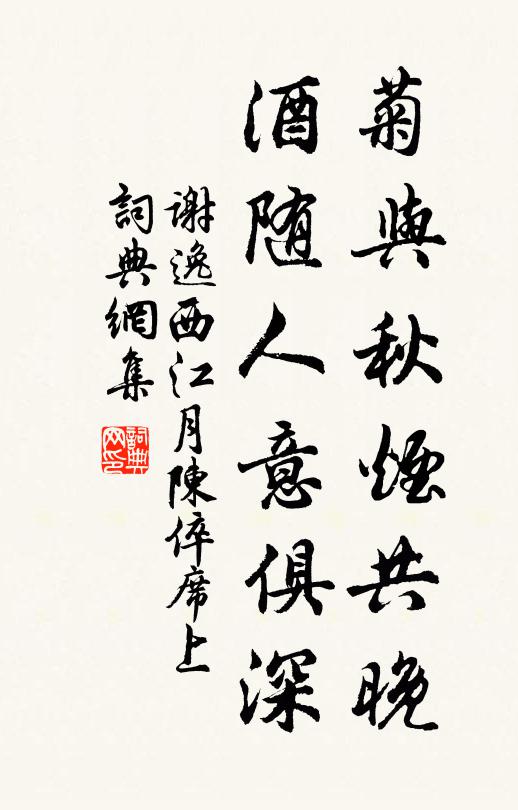 菊與秋煙共晚
酒随人意俱深
謝逸西江月陳倅席上
詞典網集
詞典網印